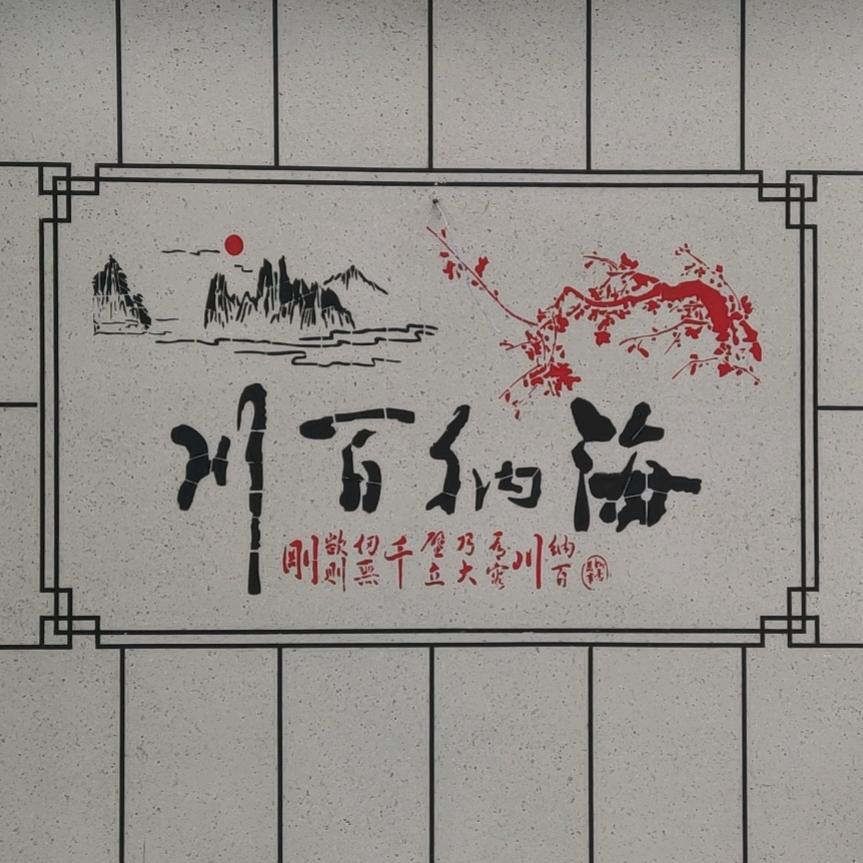 海纳百川
纳百川有容乃大壁立千仞無欲则剛